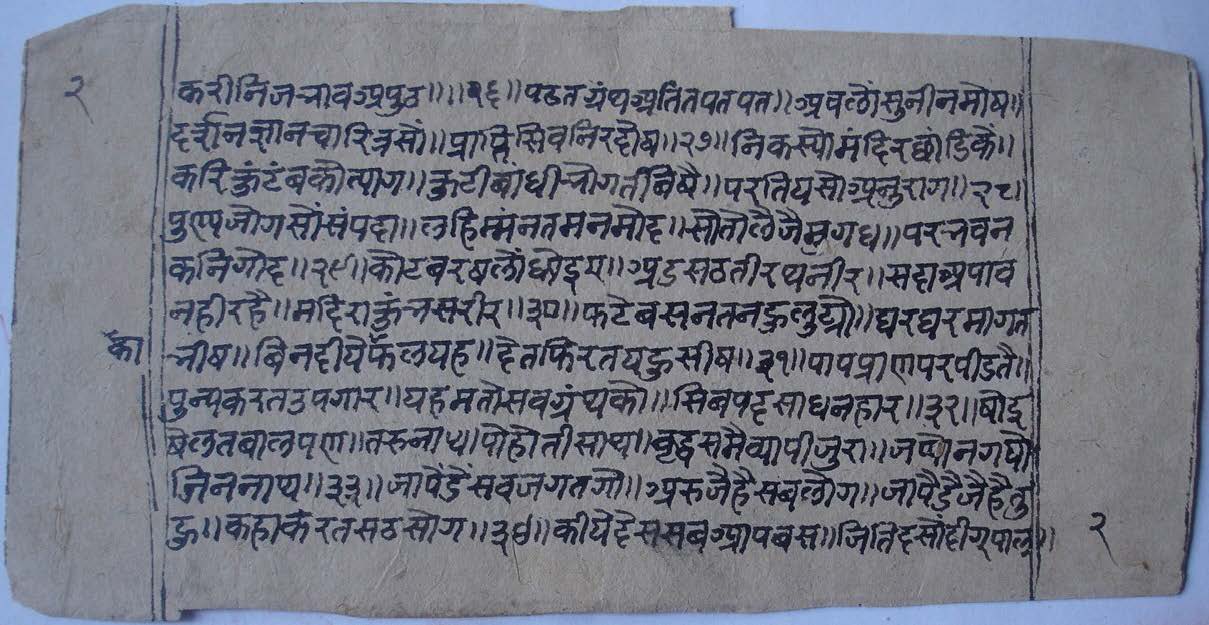 २
करी निज भाव अपुठ ॥ ॥ २६ ॥ पढत ग्रंथ अति तप तपत ॥ अब लों सुनी न मोष ॥
दर्शन ज्ञान चारित्र सों ॥ प्राप्ति सिव निरदोष ॥ २७ ॥ निकस्यौ मंदिर छांडिकैं ॥
करि कुंटंब कौ त्याग ॥ कुटी बांधी भोगत बिषै ॥ पर तिय सों अनुराग ॥ २८ ॥
पुण्य जोग सों संपदा ॥ लहि मंनत मन मोद ॥ सो तो लै जैं
क निगोद ॥ २९ ॥ कोट बरष लों धोइए ॥ अडसठ तीरथ नीर ॥ सदा अपाव
न ही रहै ॥ मदिरा कुंभ सरीर ॥ ३० ॥ फटे बसन तन हु लुट्यौ ॥ घर घर मागत
का
भीष ॥ बिन दीयै फल यह ॥ देत फिरत यहु सीष ॥ ३१ ॥ पाप प्राण पर पीडतै ॥
पुन्य करत उपगार ॥ यह मतो सव ग्रंथ कौ ॥ सिब पद साधनहार ॥ ३२ ॥ षोइ
षेलत बालपण ॥ तरुनाथापो होती साथ ॥ बृद्ध समै व्यापी जुरा ॥ जप्यो न गयो
जिननाथ ॥ ३३ ॥ जा पैंडै सव जगत गौ ॥ अरु जैहै सब लोग ॥ जा पैडै जैहै तु
हु ॥ कहा करत सठ सोग ॥ ३४ ॥ कीये देस सब आप बस ॥ जिति दसों दीगपाल ॥
२